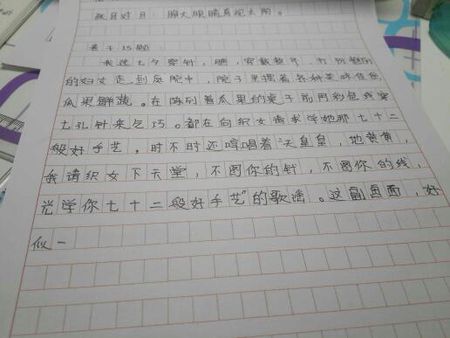 目对日，大眼睛直视太阳。
15题
七夕穿针，穿戴整齐，打扮艳丽
的妇女走到庭院中，院子里摆着各种美味佳肴
瓜果鲜蔬。在陈列着瓜果的桌子前用彩色线穿
七孔针来乞巧。都在向织女请求学她那七十二
般好手艺。时不时还哼唱着“天皇皇，地黄黄，
我请织女下天堂，不图你的针，不图你的线，
光学你七十二般好手艺”的歌谣。这副画面，好
似一